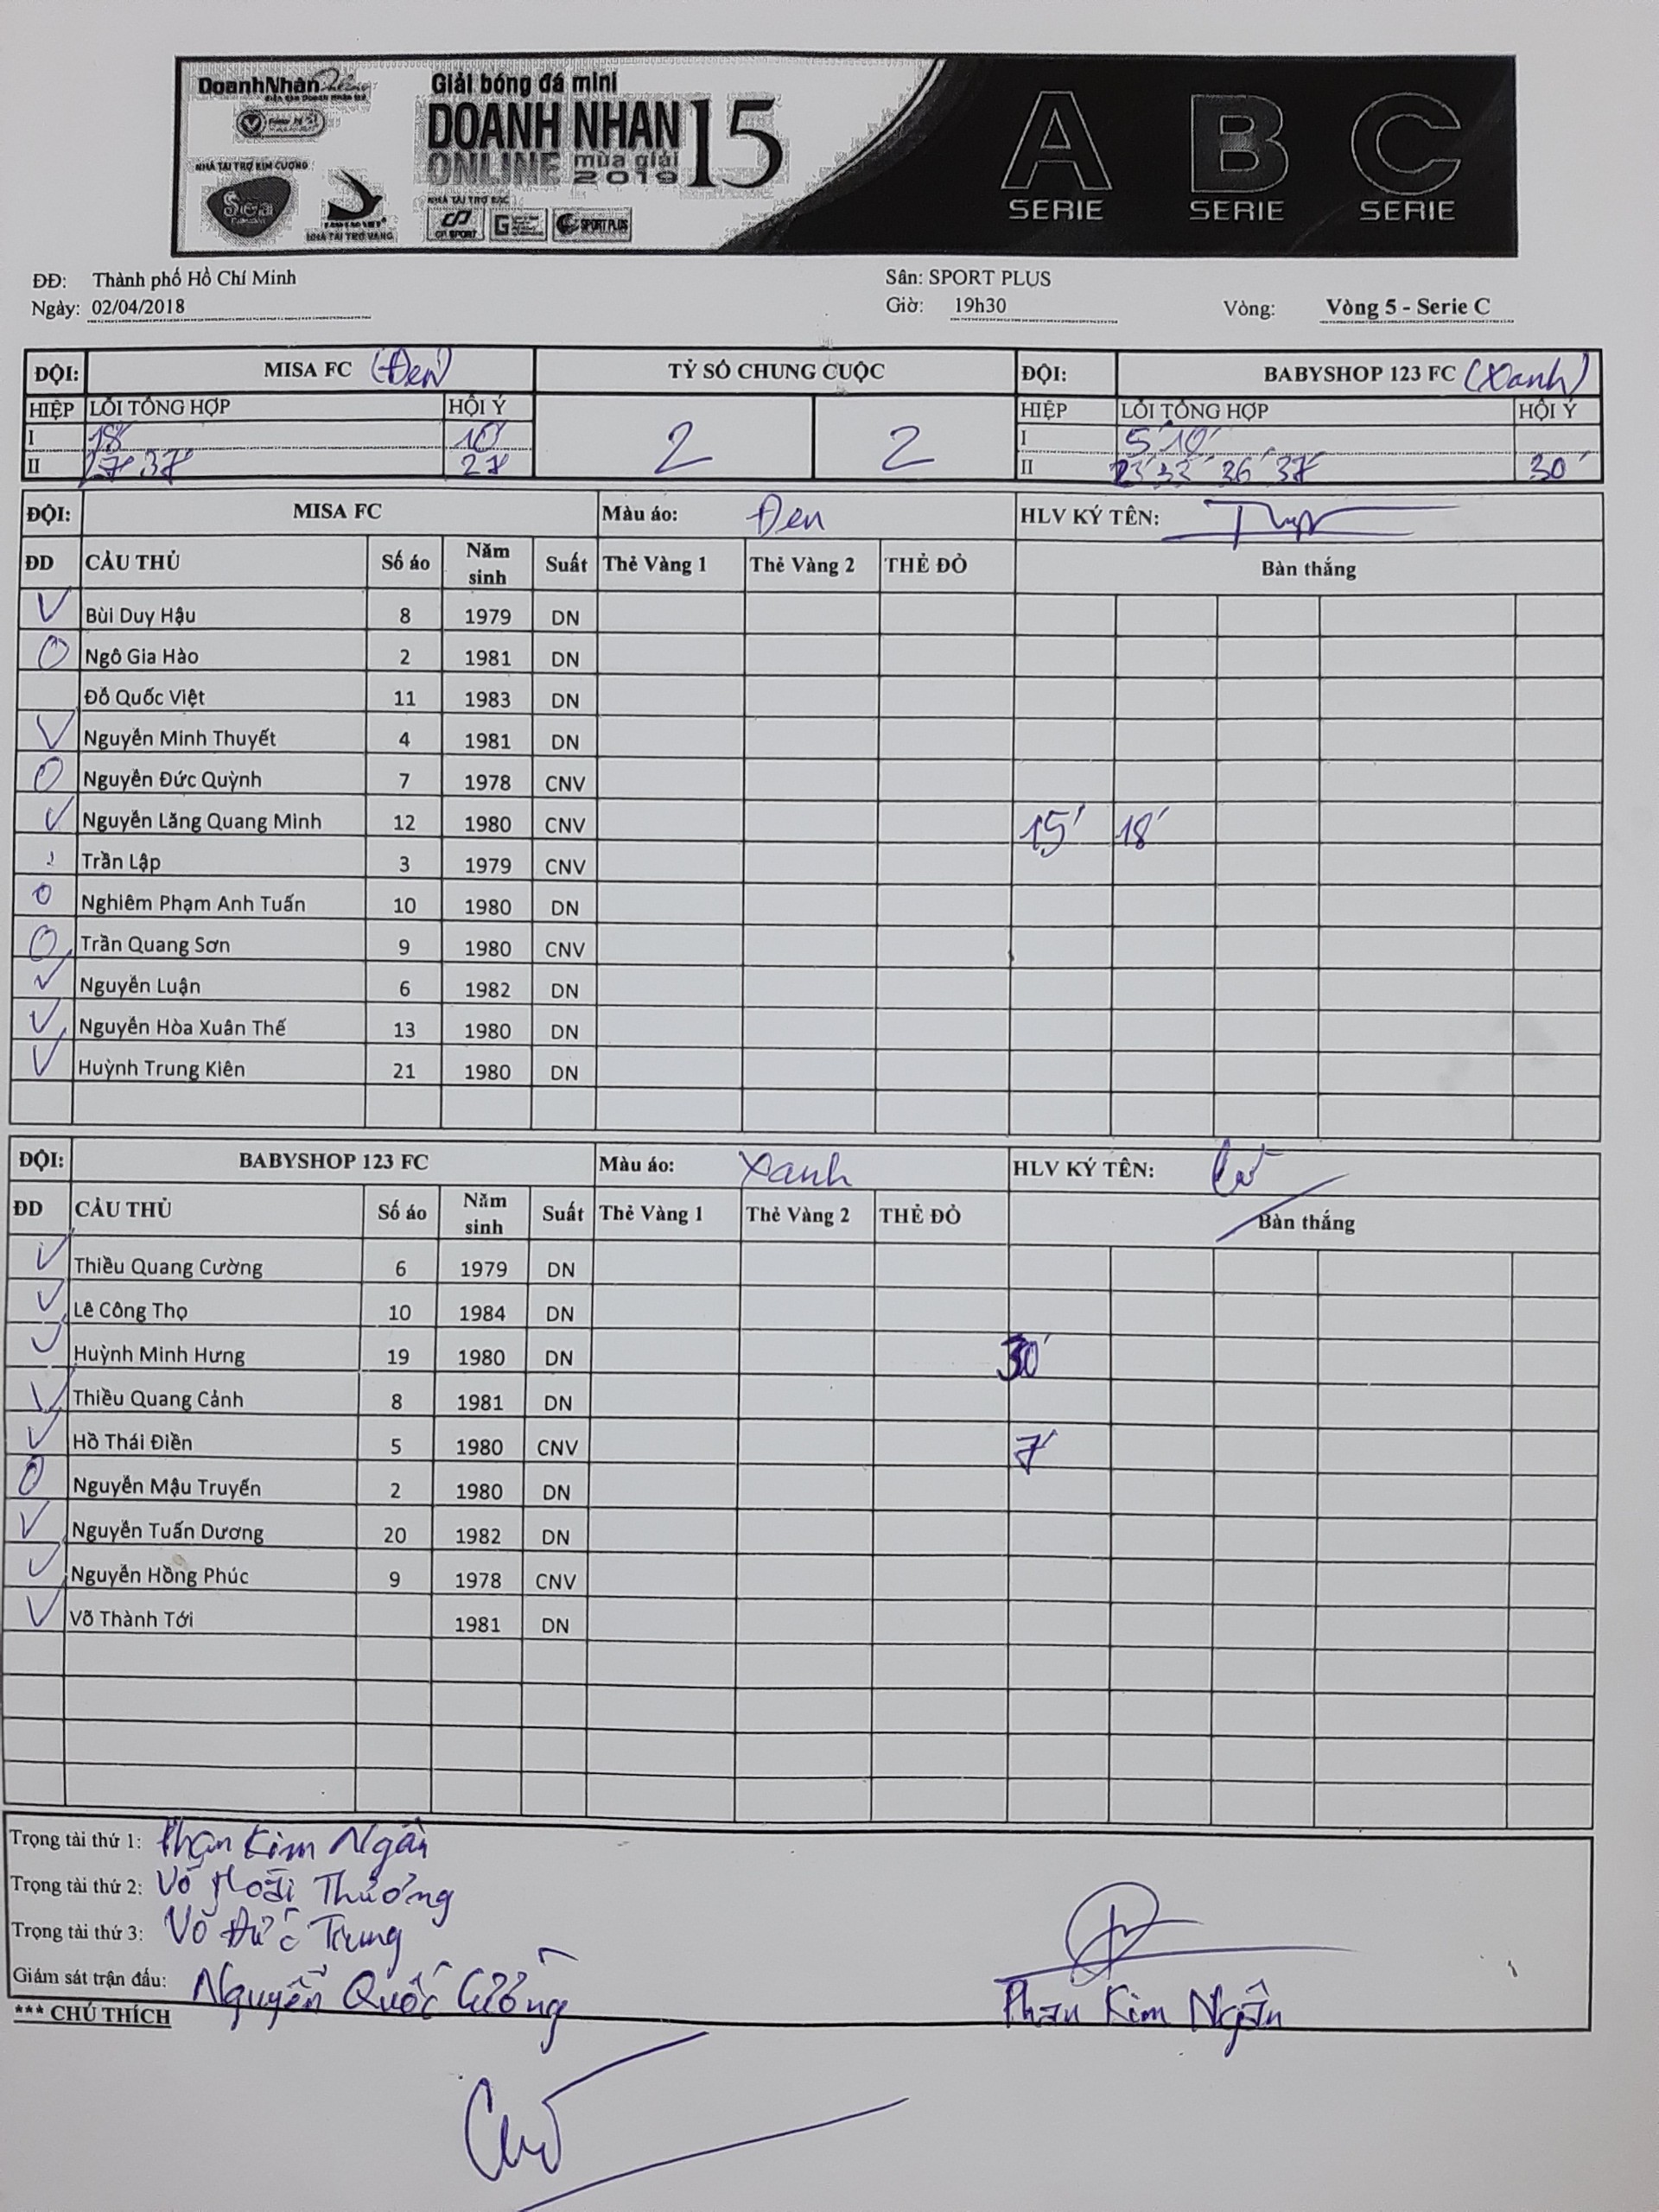 DoanhNhân
Giải bóng đá mini
DOANH NHAN 15
ONLINE mùa giải 2019
NHÀ TÀI TRỢ KIM CƯƠNG
Sea
NHÀ TÀI TRỢ VÀNG
NHÀ TÀI TRỢ BẠC
CP SPORT
SPORT PLUS
A B C
SERIE SERIE SERIE
ĐĐ: Thành phố Hồ Chí Minh Sân: SPORT PLUS
Ngày: 02/04/2018 Giờ: 19h30 Vòng: Vòng 5 - Serie C
ĐỘI: MISA FC (Đen) TỶ SỐ CHUNG CUỘC ĐỘI: BABYSHOP 123 FC (Xanh)
HIỆP LỖI TỔNG HỢP HỘI Ý 2 2 HIỆP LỖI TỔNG HỢP HỘI Ý
I 18' 10' I 5' 10'
II 27' 37' 27' II 23' 33' 36' 37' 30'
ĐỘI: MISA FC Màu áo: Đen HLV KÝ TÊN:
ĐD CẦU THỦ Số áo Năm sinh Suất Thẻ Vàng 1 Thẻ Vàng 2 THẺ ĐỎ Bàn thắng
Bùi Duy Hậu 8 1979 DN
Ngô Gia Hào 2 1981 DN
Đỗ Quốc Việt 11 1983 DN
Nguyễn Minh Thuyết 4 1981 DN
Nguyễn Đức Quỳnh 7 1978 CNV
Nguyễn Lăng Quang Minh 12 1980 CNV 15' 18'
Trần Lập 3 1979 CNV
Nghiêm Phạm Anh Tuấn 10 1980 DN
Trần Quang Sơn 9 1980 CNV
Nguyễn Luận 6 1982 DN
Nguyễn Hòa Xuân Thế 13 1980 DN
Huỳnh Trung Kiên 21 1980 DN
ĐỘI: BABYSHOP 123 FC Màu áo: Xanh HLV KÝ TÊN:
ĐD CẦU THỦ Số áo Năm sinh Suất Thẻ Vàng 1 Thẻ Vàng 2 THẺ ĐỎ Bàn thắng
Thiều Quang Cường 6 1979 DN
Lê Công Thọ 10 1984 DN
Huỳnh Minh Hưng 19 1980 DN 30'
Thiều Quang Cảnh 8 1981 DN
Hồ Thái Điền 5 1980 CNV 7'
Nguyễn Mậu Truyến 2 1980 DN
Nguyễn Tuấn Dương 20 1982 DN
Nguyễn Hồng Phúc 9 1978 CNV
Võ Thành Tới 1981 DN
Trọng tài thứ 1: Phan Kim Ngân
Trọng tài thứ 2: Võ Hoài Thương
Trọng tài thứ 3: Võ Đức Trung
Giám sát trận đấu: Nguyễn Quốc Cường Phan Kim Ngân
*** CHÚ THÍCH